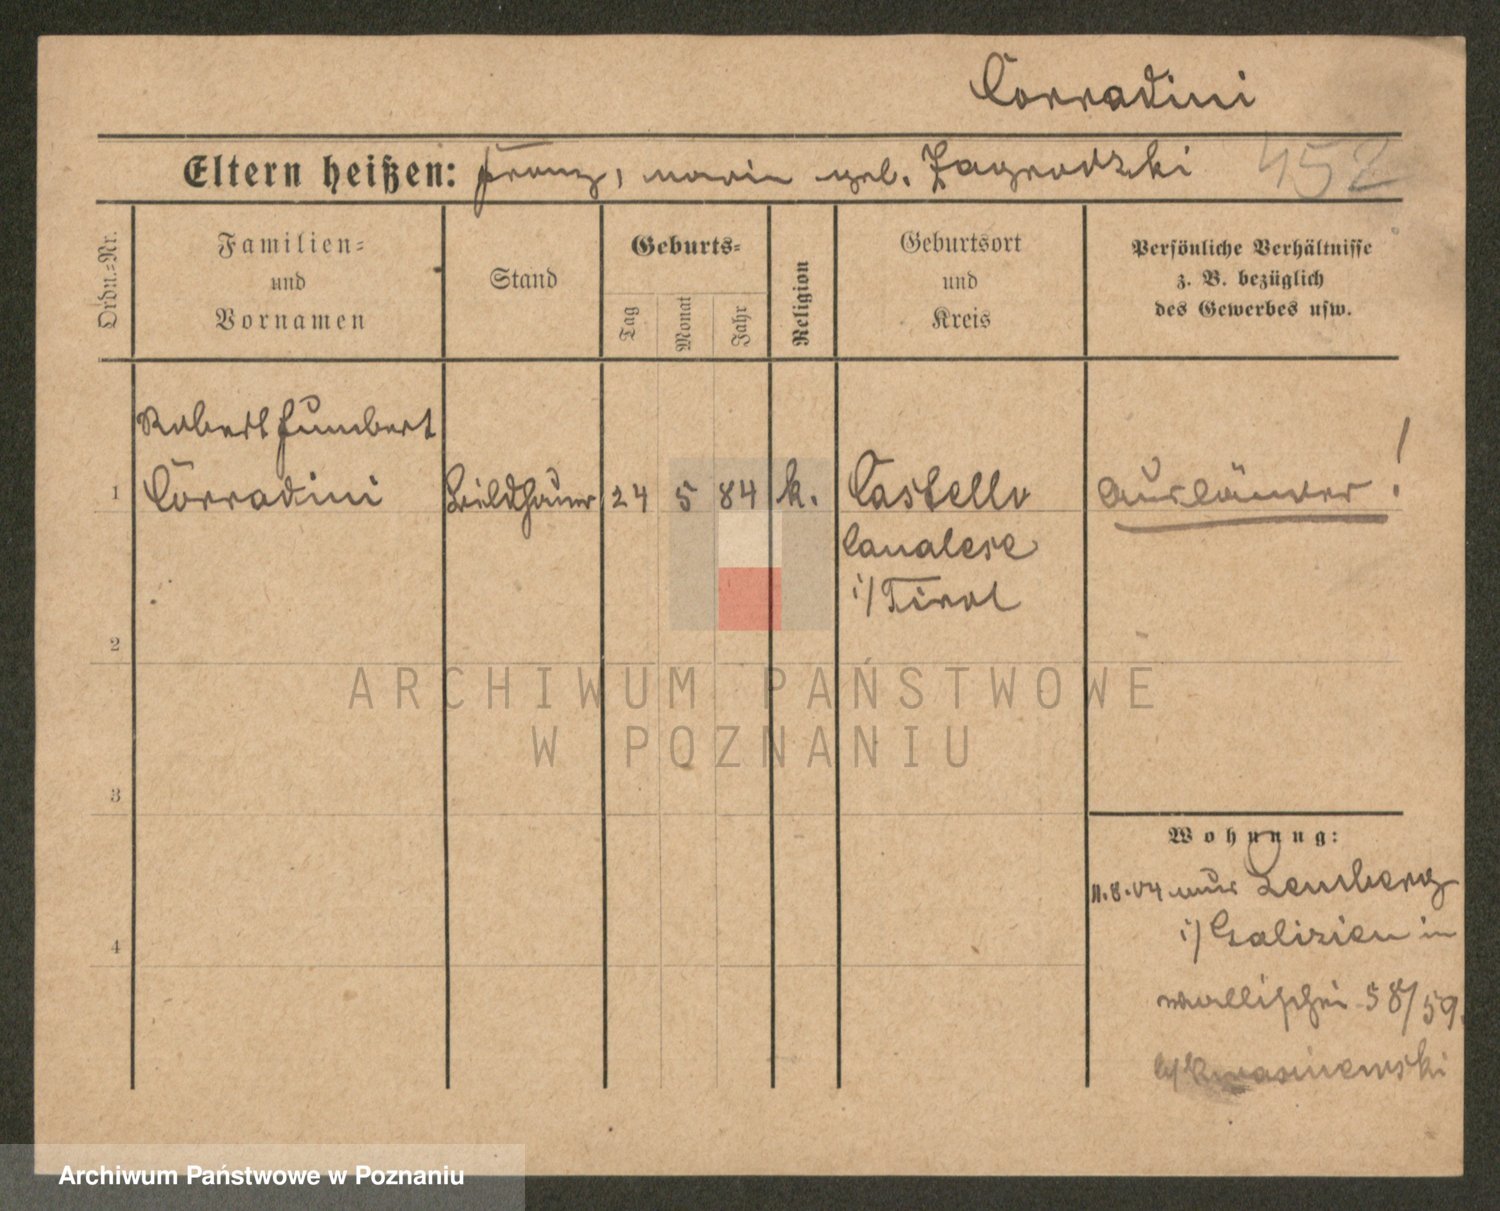 Corradini
Eltern heißen: Franz, Marie geb. Zagrodzki 452
Ordn.=Nr.
Familien=
und
Vornamen
Stand
Geburts=
Tag
Monat
Jahr
Religion
Geburtsort
und
Kreis
Persönliche Verhältnisse
z. B. bezüglich
des Gewerbes usw.
Robert Humbert
1 Corradini Bildhauer 24 5 84 k. Castello Ausländer!
Canalese
i/ Tirol
2
ARCHIWUM PAŃSTWOWE
W POZNANIU
3
Wohnung:
11.8.04 aus Lemberg
i/ Galizien in
Wallischei 58/59.
b/ Kwasniewski
4
Archiwum Państwowe w Poznaniu